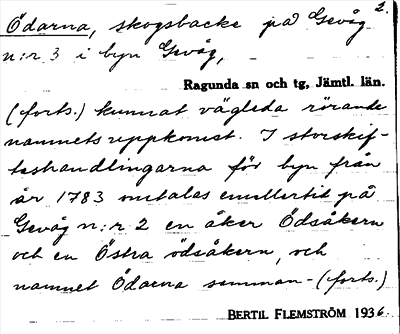 2.
Ödarna, skogsbacke på Gevåg
n:r 3 i byn Gevåg,
Ragunda sn och tg, Jämtl. län.
(forts.) kunnat vägleda rörande
namnets uppkomst. I storskif-
teshandlingarna för byn från
år 1783 omtalas emellertid på
Gevåg n:r 2 en åker Ödsåkern
och en Östra ödsåkern, och
namnet Ödarna samman- (forts.)
BERTIL FLEMSTRÖM 1936.